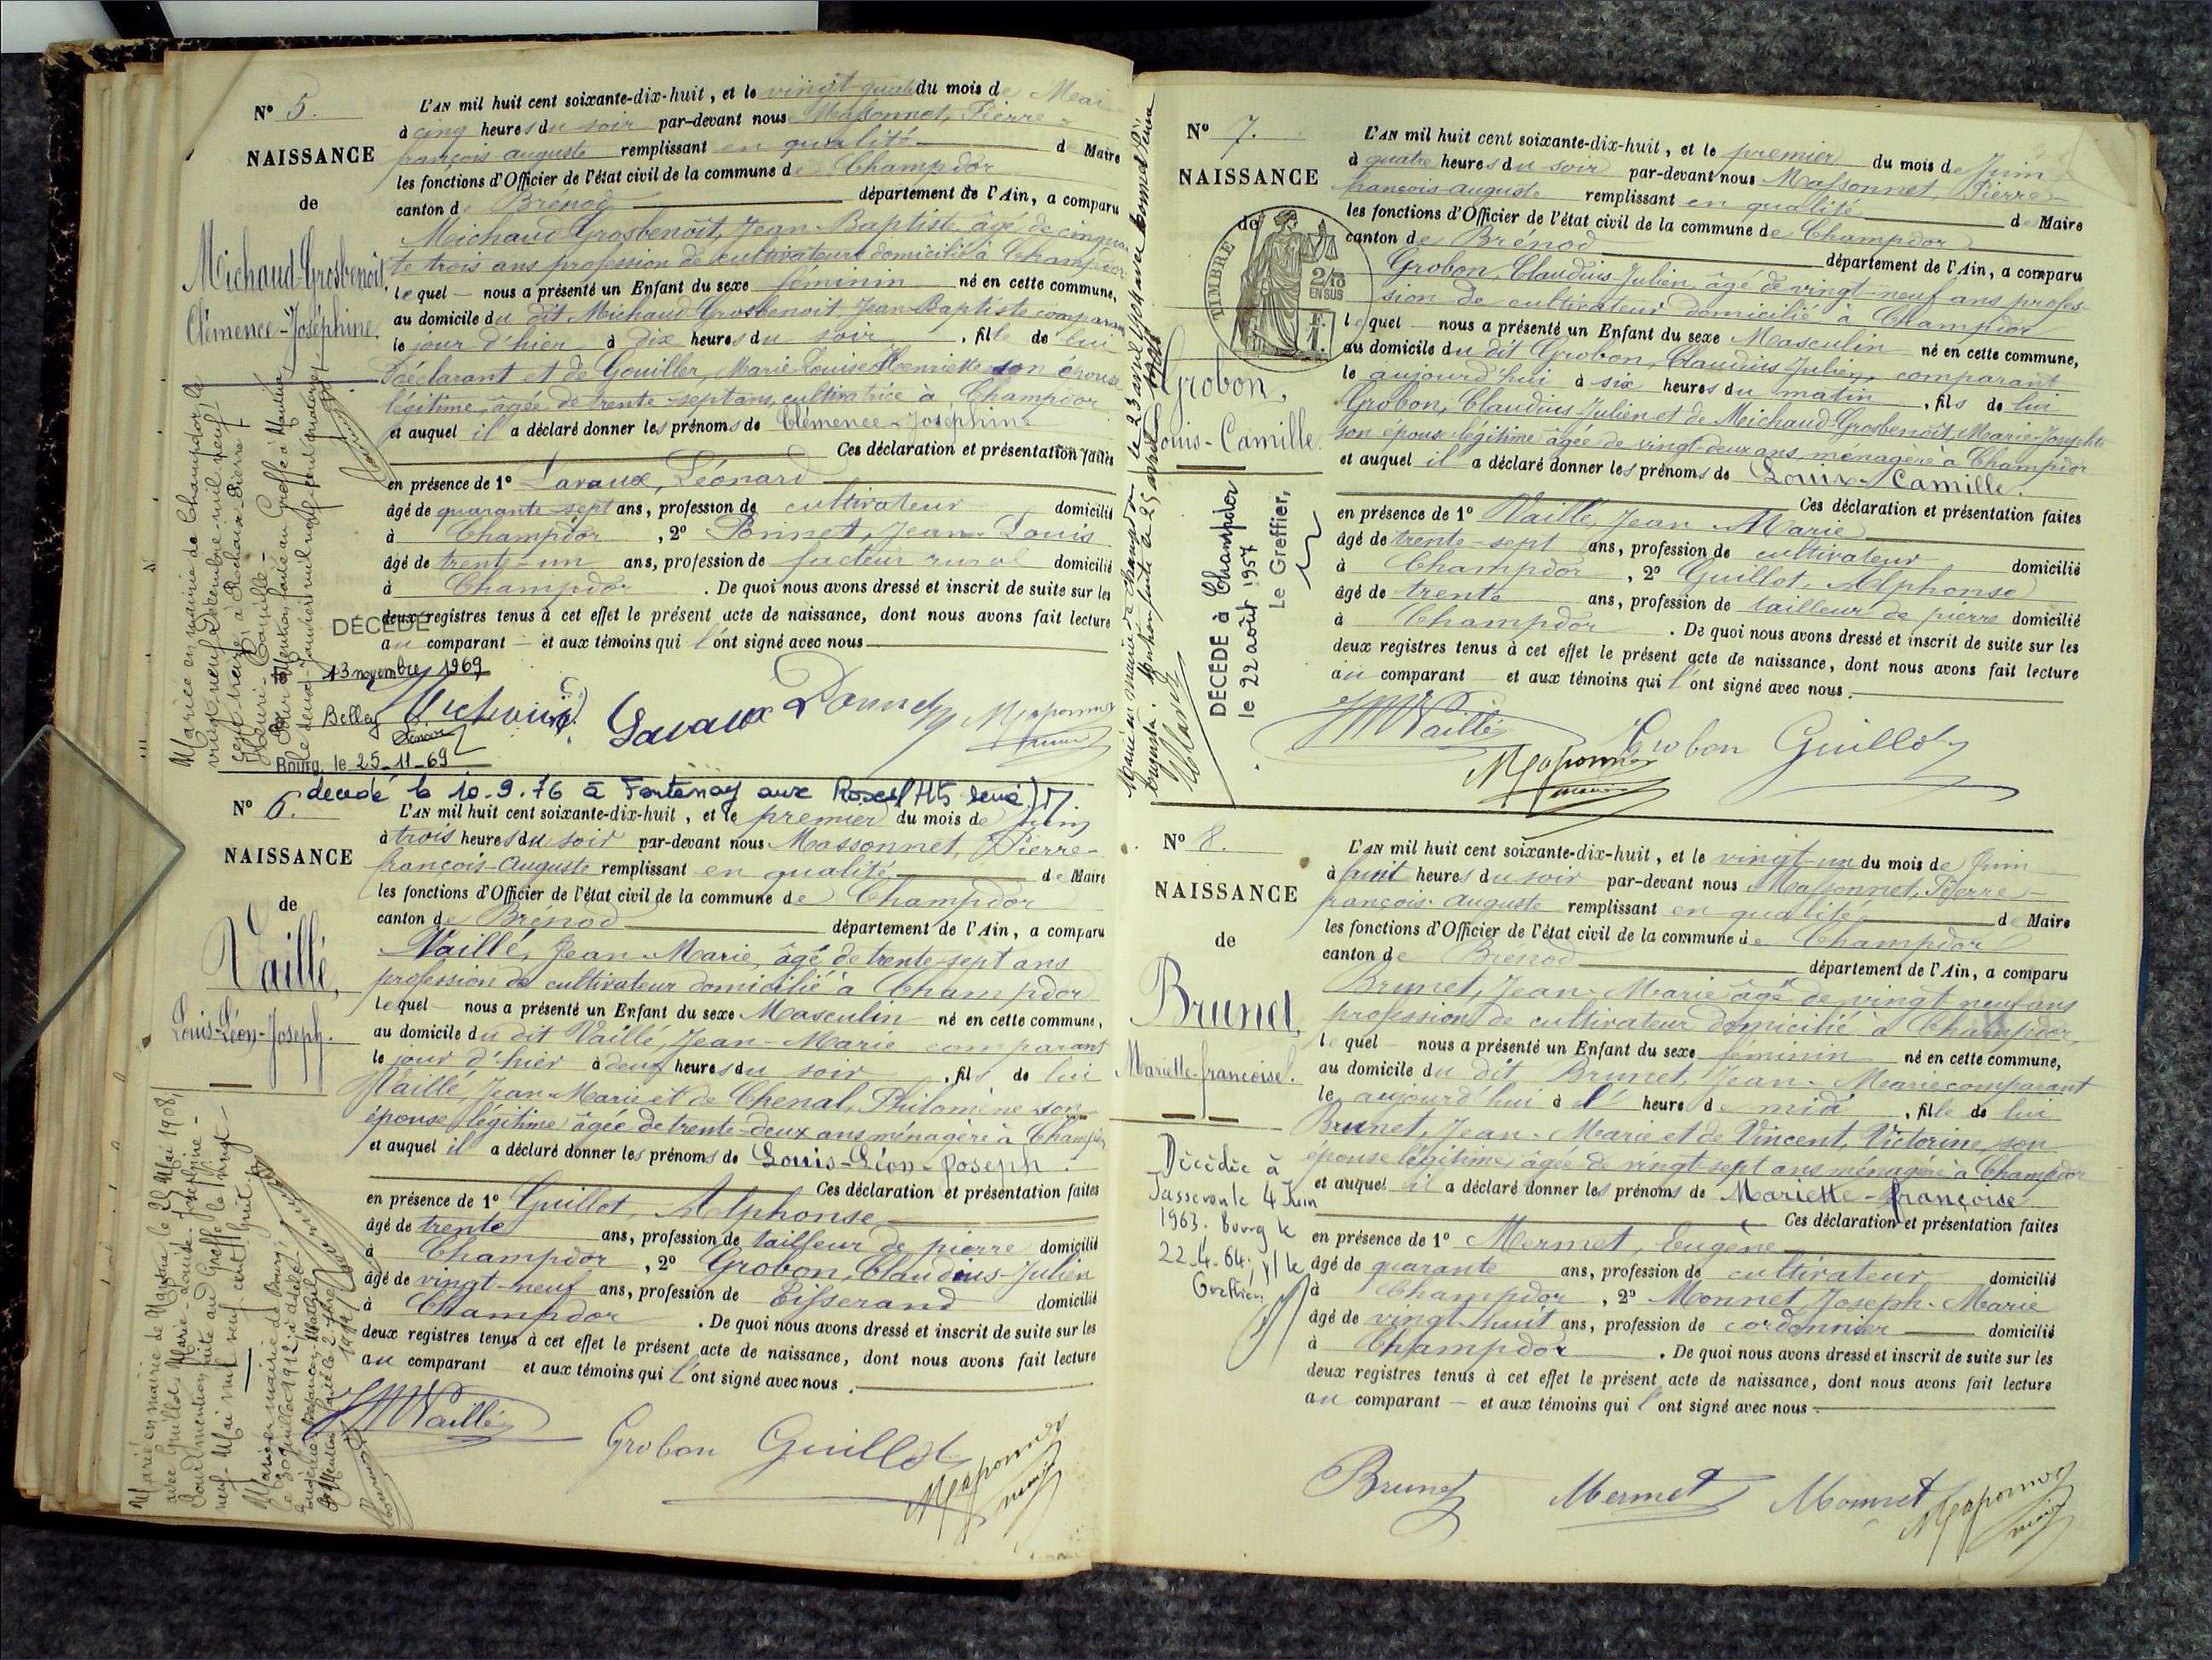 N° 5.
NAISSANCE
de
Michaud-Grosbenoit,
Clémence-Joséphine.
L'AN mil huit cent soixante-dix-huit, et le vingt-quatre du mois de Mai
à cinq heures du soir par-devant nous Massonnet, Pierre-
françois-auguste remplissant en qualité de Maire
les fonctions d'Officier de l'état civil de la commune de Champdor
canton de Brénod département de l'Ain, a comparu
Michaud Grosbenoit, Jean-Baptiste, âgé de cinquan
te trois ans profession de cultivateur domicilié à Champdor
lequel nous a présenté un Enfant du sexe féminin né en cette commune,
au domicile du dit Michaud Grosbenoit, Jean-Baptiste comparant
le jour d'hier à dix heures du soir, fille de lui
Déclarant et de Gouiller, Marie-Louise Henriette son épouse
légitime, âgée de trente-sept ans, cultivatrice à Champdor
et auquel il a déclaré donner les prénoms de Clémence-Joséphine
Ces déclaration et présentation faites
en présence de 1° Lavaux, Léonard
âgé de quarante-sept ans, profession de cultivateur domicilié
à Champdor, 2° Ponnet, Jean-Louis
âgé de trente-un ans, profession de facteur rural domicilié
à Champdor. De quoi nous avons dressé et inscrit de suite sur les
deux registres tenus à cet effet le présent acte de naissance, dont nous avons fait lecture
au comparant et aux témoins qui l'ont signé avec nous
Mariée en mairie de Champdor le
vingt-neuf Décembre mil neuf
cent treize, à Rochaix Pierre
Henri-Camille-
Mention faite au Greffe à Nantua,
le deux Janvier mil neuf cent quatorze,
DÉCÉDÉ
13 novembre 1969
Belley
Bourg, le 25-11-69
Michaud Lavaux Ponnet Massonnet
maire
décédé le 10.9.76 à Fontenay aux Roses
N° 6.
NAISSANCE
de
Vaillé,
Louis-Léon-Joseph.
L'AN mil huit cent soixante-dix-huit, et le premier du mois de Juin
à trois heures du soir par-devant nous Massonnet, Pierre-
françois-Auguste remplissant en qualité de Maire
les fonctions d'Officier de l'état civil de la commune de Champdor
canton de Brénod département de l'Ain, a comparu
Vaillé, Jean-Marie, âgé de trente-sept ans
profession de cultivateur domicilié à Champdor
lequel nous a présenté un Enfant du sexe Masculin né en cette commune,
au domicile du dit Vaillé, Jean-Marie comparant
le jour d'hier à deux heures du soir, fils de lui
Vaillé, Jean-Marie et de Chenal, Philomène son
épouse légitime âgée de trente-deux ans ménagère à Champdor
et auquel il a déclaré donner les prénoms de Louis-Léon-Joseph.
Ces déclaration et présentation faites
en présence de 1° Guillot, Alphonse
âgé de trente ans, profession de tailleur de pierre domicilié
à Champdor, 2° Grobon, Claudius-Julien
âgé de vingt-neuf ans, profession de Tisserand domicilié
à Champdor. De quoi nous avons dressé et inscrit de suite sur les
deux registres tenus à cet effet le présent acte de naissance, dont nous avons fait lecture
au comparant et aux témoins qui l'ont signé avec nous.
Marié en mairie de Nantua le 22 Mai 1908,
avec Guillot, Marie-Louise-Joséphine-
Pour mention faite au Greffe le vingt-
neuf-Mai mil neuf cent huit.
Marié en mairie de Bourg,
le 30 Juillet 1912, à
JM Vaillé Grobon Guillot Massonnet
maire
N° 7.
NAISSANCE
de
TIMBRE
2/10
EN SUS
Grobon,
Louis-Camille.
L'AN mil huit cent soixante-dix-huit, et le premier du mois de Juin
à quatre heures du soir par-devant nous Massonnet, Pierre-
françois-auguste remplissant en qualité de Maire
les fonctions d'Officier de l'état civil de la commune de Champdor
canton de Brénod département de l'Ain, a comparu
Grobon, Claudius-Julien, âgé de vingt-neuf ans profes-
sion de cultivateur domicilié à Champdor
lequel nous a présenté un Enfant du sexe Masculin né en cette commune,
au domicile du dit Grobon, Claudius Julien, comparant
le aujourd'hui à six heures du matin, fils de lui
Grobon, Claudius-Julien et de Michaud-Grosbenoit, Marie-Josephte
son épouse légitime âgée de vingt-deux ans ménagère à Champdor
et auquel il a déclaré donner les prénoms de Louis-Camille.
Ces déclaration et présentation faites
en présence de 1° Vaillé, Jean-Marie
âgé de trente-sept ans, profession de cultivateur domicilié
à Champdor, 2° Guillot, Alphonse
âgé de trente ans, profession de tailleur de pierre domicilié
à Champdor. De quoi nous avons dressé et inscrit de suite sur les
deux registres tenus à cet effet le présent acte de naissance, dont nous avons fait lecture
au comparant et aux témoins qui l'ont signé avec nous.
Marié en mairie de Champdor le 23 avril 1904 avec
DÉCÉDÉ à Champdor
le 22 août 1957
Le Greffier,
JM Vaillé Grobon Guillot
Massonnet
maire
N° 8.
NAISSANCE
de
Brunet,
Mariette-françoise.
L'AN mil huit cent soixante-dix-huit, et le vingt-un du mois de Juin
à huit heures du soir par-devant nous Massonnet, Pierre-
françois-auguste remplissant en qualité de Maire
les fonctions d'Officier de l'état civil de la commune de Champdor
canton de Brénod département de l'Ain, a comparu
Brunet, Jean-Marie âgé de vingt-neuf ans
profession de cultivateur domicilié à Champdor,
lequel nous a présenté un Enfant du sexe féminin né en cette commune,
au domicile du dit Brunet, Jean-Marie comparant
le aujourd'hui à l' heure de midi, fille de lui
Brunet, Jean-Marie et de Vincent, Victorine, son
épouse légitime, âgée de vingt-sept ans ménagère à Champdor
et auquel il a déclaré donner les prénoms de Mariette-françoise
Ces déclaration et présentation faites
en présence de 1° Mermet, Eugène
âgé de quarante ans, profession de cultivateur domicilié
à Champdor, 2° Monnet, Joseph-Marie
âgé de vingt-huit ans, profession de cordonnier domicilié
à Champdor. De quoi nous avons dressé et inscrit de suite sur les
deux registres tenus à cet effet le présent acte de naissance, dont nous avons fait lecture
au comparant et aux témoins qui l'ont signé avec nous
Décédée à
Jasseron le 4 Juin
1963. Bourg le
22-4-64. Le
Greffier
Brunet Mermet Monnet Massonnet
maire